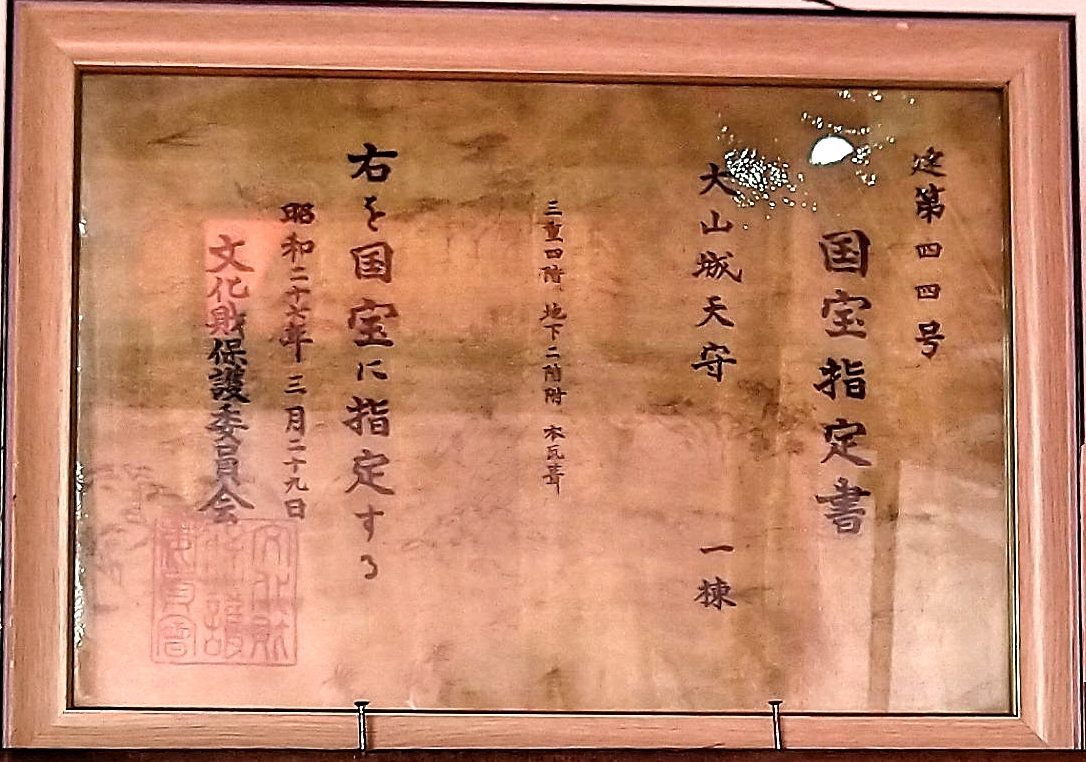 建第四四号
国宝指定書
犬山城天守 一棟
三重四階、地下二階附、本瓦葺
右を国宝に指定する
昭和二十七年三月二十九日
文化財保護委員会
文化財
保護
委員會